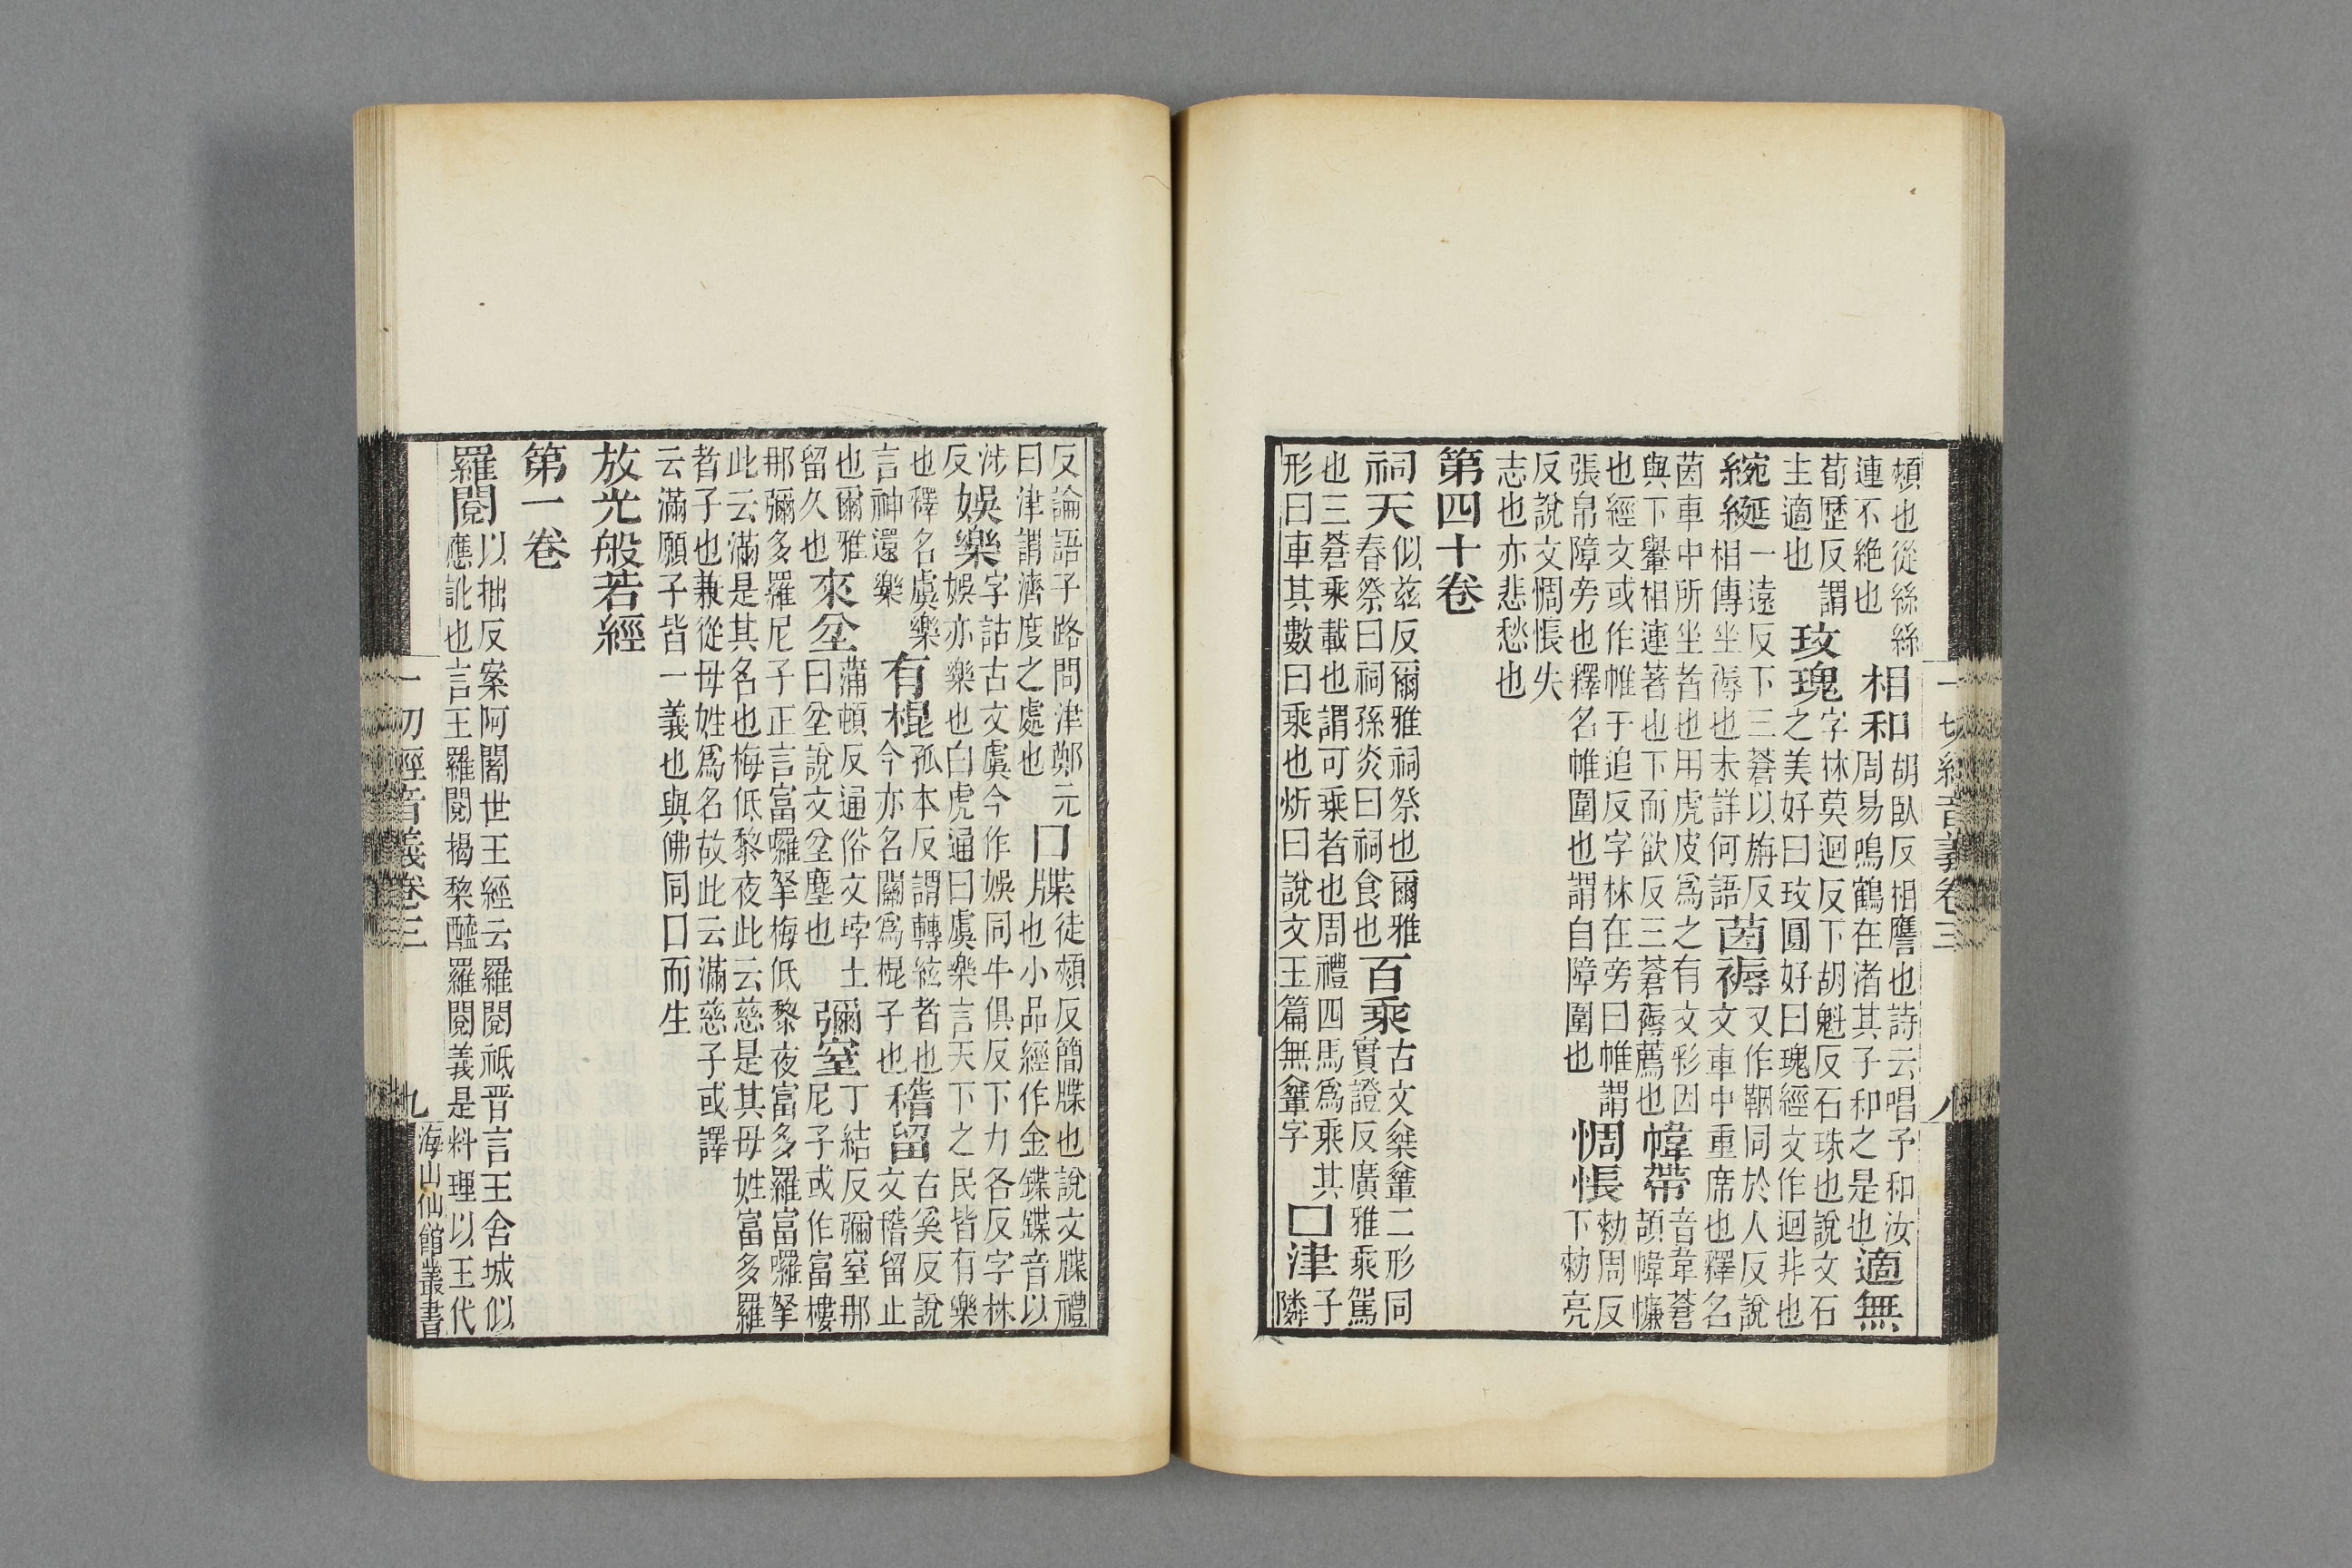 一切經音義卷三
八
頰也從絲絲
連不絶也
相和
胡臥反相譍也詩云唱予和汝
周易鳴鶴在渚其子和之是也
適無
荀歴反謂
主適也
玫瑰
字林莫迴反下胡魁反石珠也說文石
之美好曰玫圓好曰瑰經文作迴非也
綩綖
一遠反下三蒼以旃反
相傳坐蓐也未詳何語
茵褥
又作鞇同於人反說
文車中重席也釋名
茵車中所坐者也用虎皮爲之有文彩因
與下轝相連著也下而欲反三蒼蓐薦也
幃帶
音韋蒼
頡幃㡘
也經文或作帷于追反字林在旁曰帷謂
張帛障旁也釋名帷圍也謂自障圍也
惆悵
勑周反
下勑亮
反說文惆悵失
志也亦悲愁也
第四十卷
祠天
似茲反爾雅祠祭也爾雅
春祭曰祠孫炎曰祠食也
百乘
古文椉𠅞二形同
實證反廣雅乘駕
也三蒼乘載也謂可乘者也周禮四馬爲乘其
形曰車其數曰乘也炘曰說文玉篇無𠅞字
口津
子
隣
反論語子路問津鄭元
曰津謂濟度之處也
口牒
徒頰反簡牒也說文牒禮
也小品經作金鍱鍱音以
涉
反
娛樂
字詁古文虞今作娛同牛俱反下力各反字林
娛亦樂也白虎通曰虞樂言天下之民皆有樂
也釋名虞樂
言神還樂
有棍
孤本反謂轉絃者也
今亦名關爲棍子也
稽留
右奚反說
文稽留止
也爾雅
留久也
來坌
蒲頓反通俗文㘷土
曰坌說文坌塵也
彌窒
丁結反彌窒那
尼子或作富樓
那彌多羅尼子正言富囉拏梅低黎夜富多羅富囉拏
此云滿是其名也梅低黎夜此云慈是其母姓富多羅
者子也兼從母姓爲名故此云滿慈子或譯
云滿願子皆一義也與佛同日而生
放光般若經
第一卷
羅閱
以拙反案阿闍世王經云羅閱祇晋言王舍城似
應訛也言王羅閱揭棃醯羅閱義是料理以王代
一切經音義卷三
九
海山仙館叢書